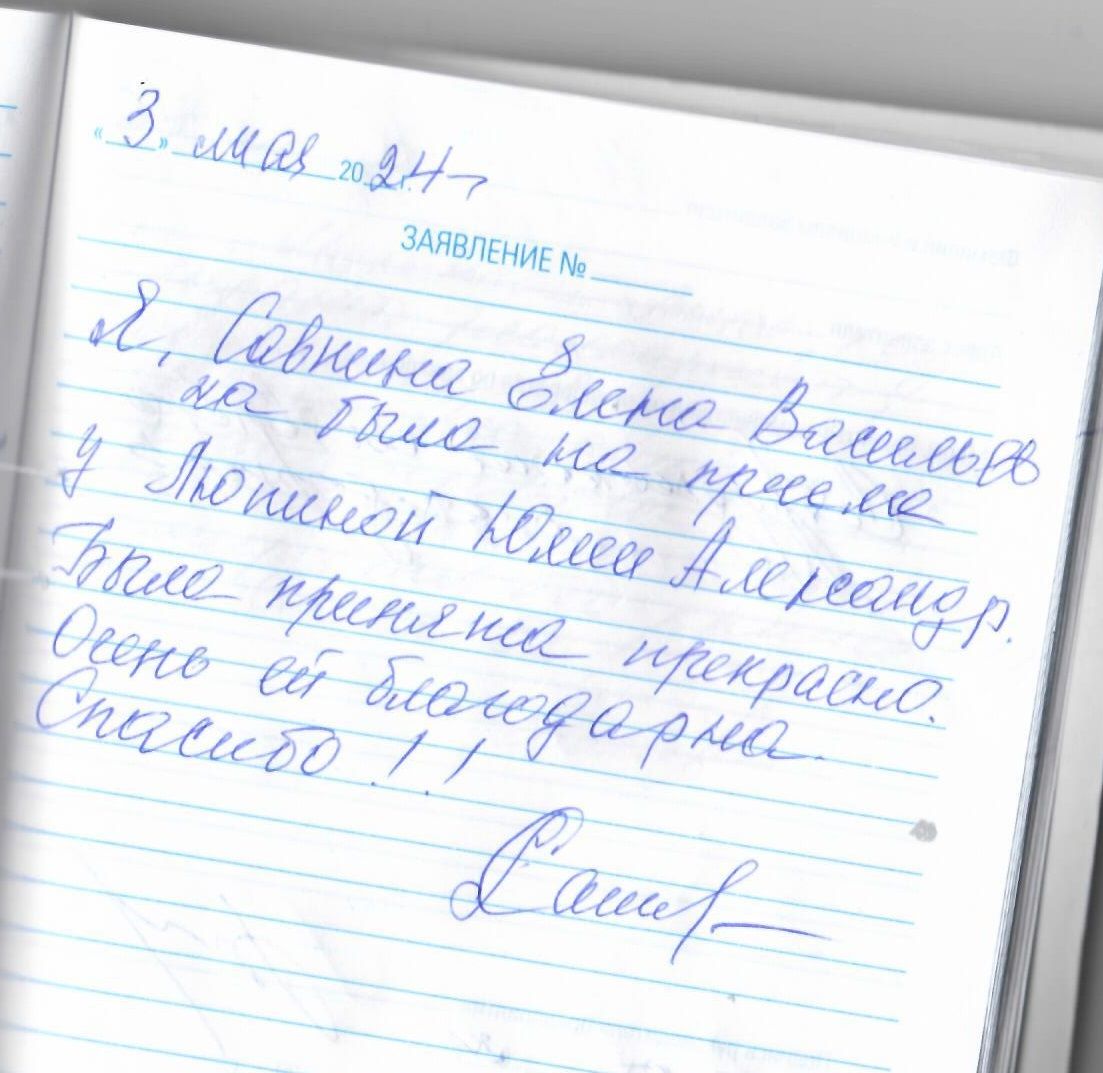 «3» мая 2024 г.
ЗАЯВЛЕНИЕ №
Я, Савнина Елена Васильев
на была на приеме
у Люпиной Юлии Александр.
Была принята прекрасно.
Очень ей благодарна.
Спасибо!!